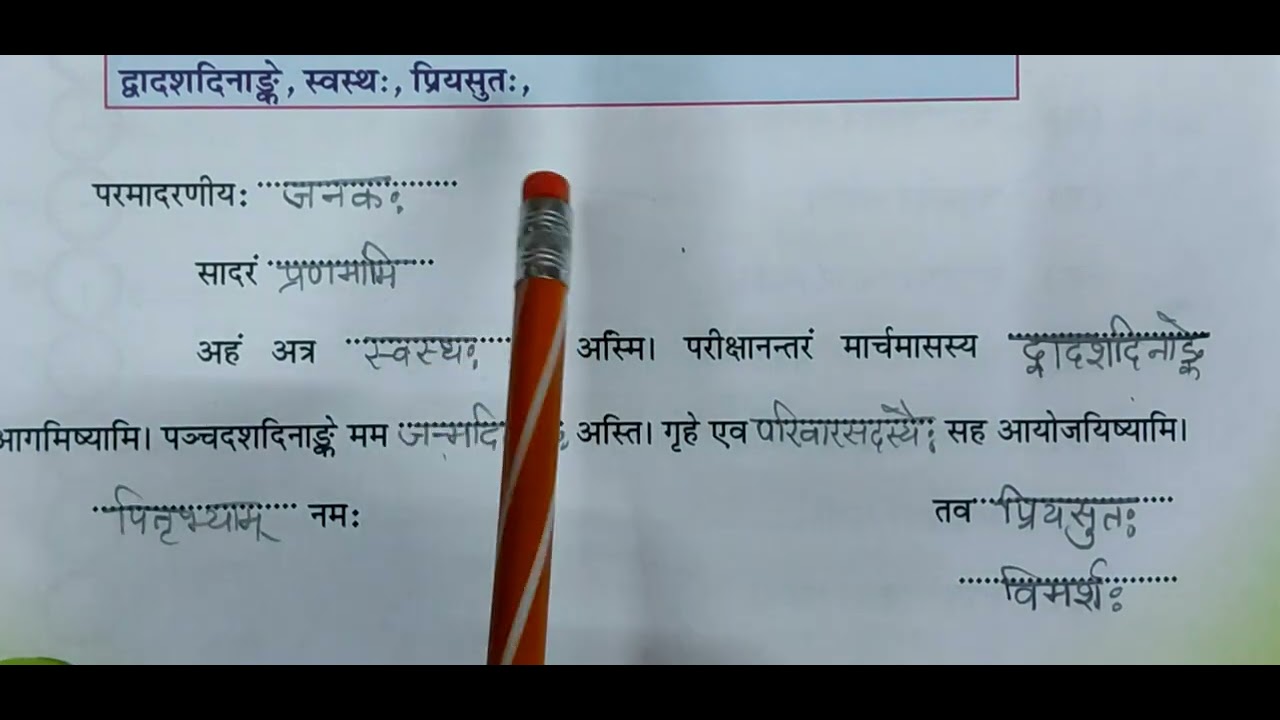 द्वादशदिनाङ्के, स्वस्थः, प्रियसुतः,
परमादरणीयः जनकः
सादरं प्रणमामि
अहं अत्र स्वस्थः अस्मि। परीक्षानन्तरं मार्चमासस्य द्वादशदिनाङ्के
आगमिष्यामि। पञ्चदशदिनाङ्के मम अस्ति। गृहे एव परिवारसदस्यैः सह आयोजयिष्यामि।
पितृभ्याम् नमः तव प्रियसुतः
विमर्शः